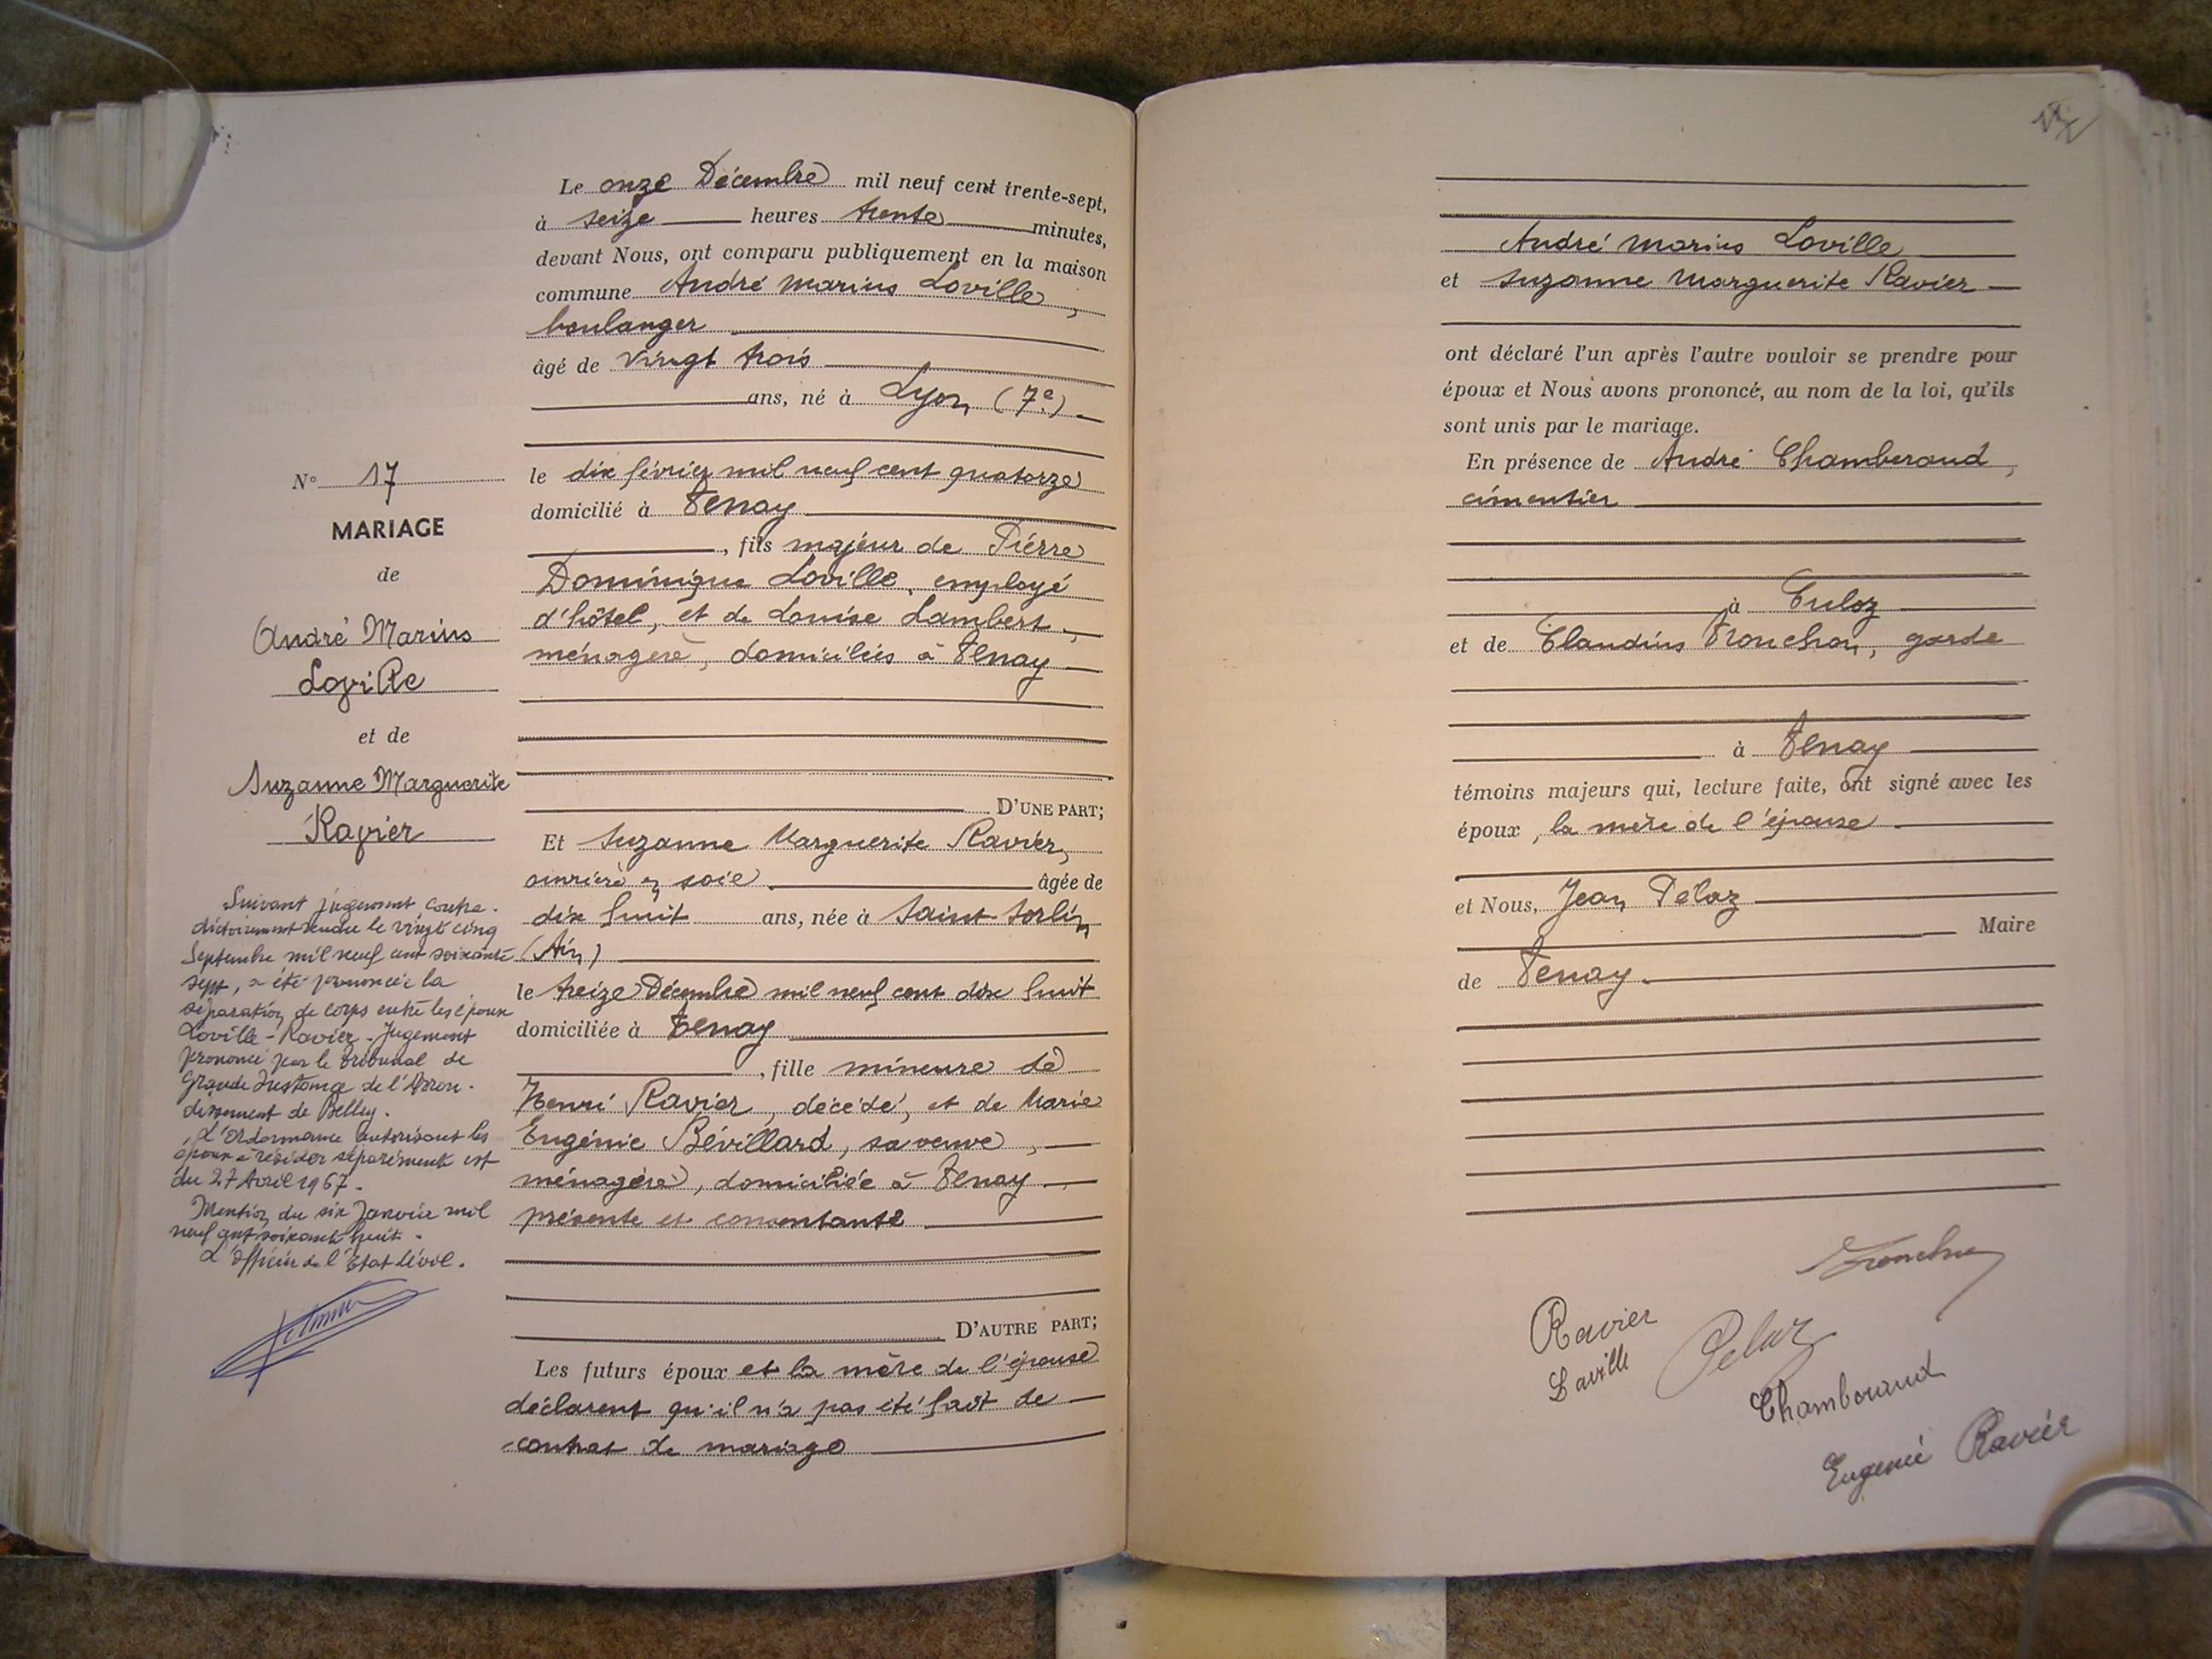 N° 17
MARIAGE
de
André Marius
Loville
et de
Suzanne Marguerite
Ravier
Suivant jugement contra-
dictoirement rendu le vingt cinq
Septembre mil neuf cent soixante
sept, a été prononcée la
séparation de corps entre les époux
Loville - Ravier - Jugement
prononcé par le Tribunal de
Grande Instance de l'Arron-
dissement de Belley.
L'Ordonnance autorisant les
époux à résider séparément est
du 27 Avril 1967.
Mention du six Janvier mil
neuf cent soixante huit.
L'Officier de l'Etat Civil.
Le onze Décembre mil neuf cent trente-sept,
à seize heures trente minutes,
devant Nous, ont comparu publiquement en la maison
commune André Marius Loville,
boulanger
âgé de vingt trois
ans, né à Lyon (7e)
le dix février mil neuf cent quatorze
domicilié à Tenay
, fils majeur de Pierre
Dominique Loville, employé
d'hôtel, et de Louise Lambert,
ménagère, domiciliés à Tenay
D'UNE PART;
Et Suzanne Marguerite Ravier,
ouvrière en soie âgée de
dix huit ans, née à Saint Sorlin
(Ain)
le treize Décembre mil neuf cent dix huit
domiciliée à Tenay
, fille mineure de
Henri Ravier, décédé, et de Marie
Eugénie Bévillard, sa veuve,
ménagère, domiciliée à Tenay
présente et consentante
D'AUTRE PART;
Les futurs époux et la mère de l'épouse
déclarent qu'il n'a pas été fait de
contrat de mariage
André Marius Loville
et Suzanne Marguerite Ravier
ont déclaré l'un après l'autre vouloir se prendre pour
époux et Nous avons prononcé, au nom de la loi, qu'ils
sont unis par le mariage.
En présence de André Chamberaud,
cimentier
à Culoz
et de Claudius Tronchon, garde
à Tenay
témoins majeurs qui, lecture faite, ont signé avec les
époux, la mère de l'épouse
et Nous, Jean Pelaz
Maire
de Tenay
Ravier
Laville
Pelaz
Chamberaud
Eugenié Ravier